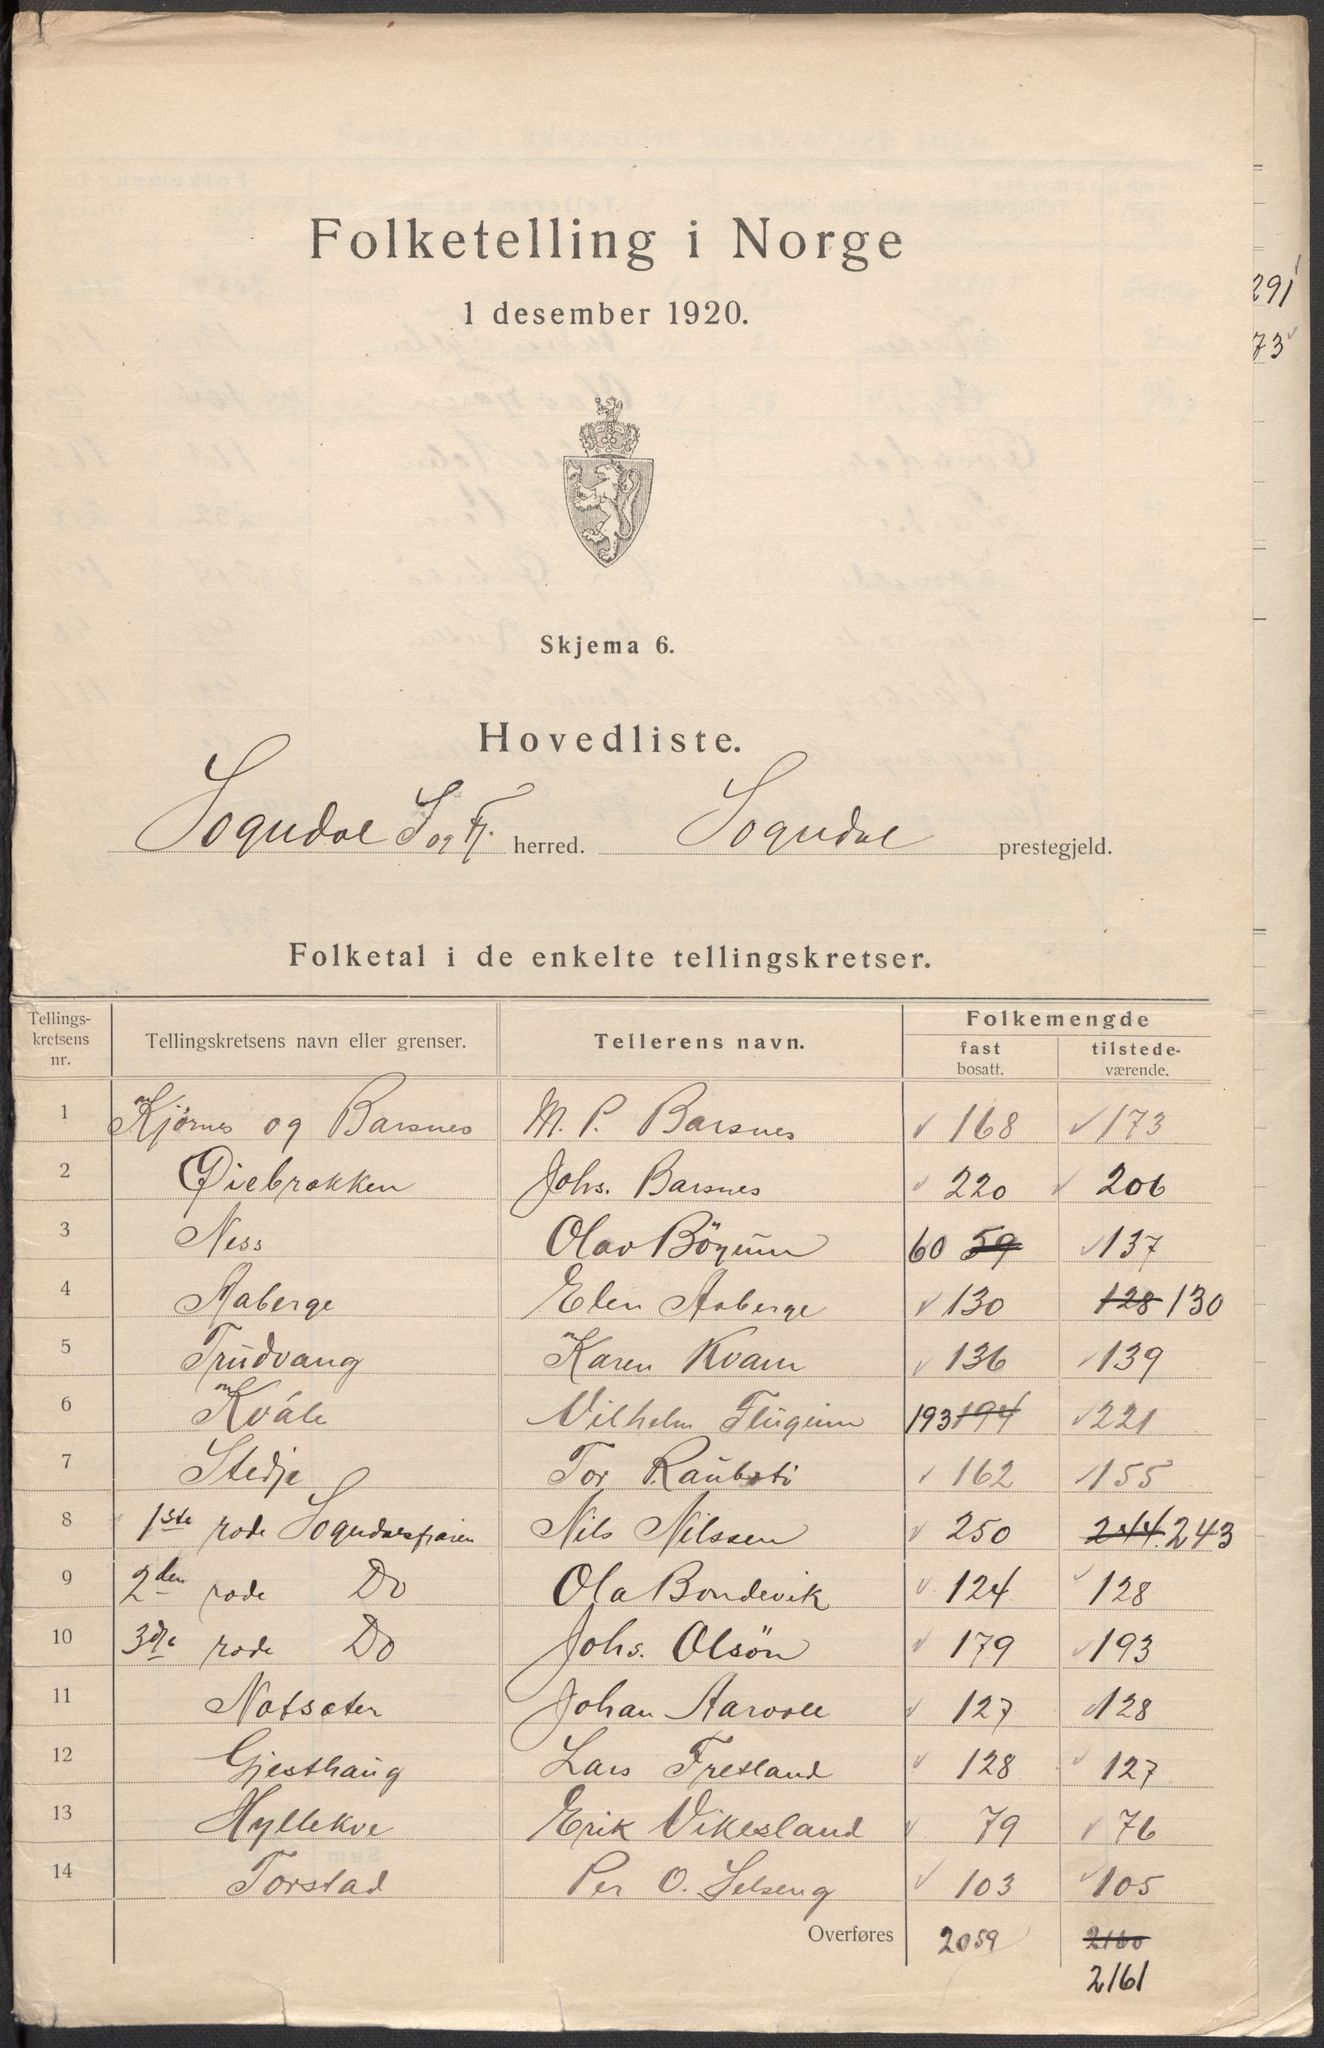 Folketelling i Norge
1 desember 1920.
291
73
Skjema 6.
Hovedliste.
Sogndal S og Fj. herred. Sogndal prestegjeld.
Folketal i de enkelte tellingskretser.
Tellings-kretsens nr. Tellingskretsens navn eller grenser. Tellerens navn. Folkemengde
fast bosatt. tilstede-værende.
1 Kjörnes og Barsnes M. P. Barsnes 168 173
2 Øiebrækken Johs. Barsnes 220 206
3 Ness Olav Bögum 60 59 137
4 Aaberge Elen Aaberge 130 128 130
5 Trudvang Karen Kvam 136 139
6 Kvåle Vilhelm Flugeim 193 194 221
7 Stedje Tor Raubsti 162 155
8 1ste rode Sogndalsfjæren Nils Nilssen 250 244 243
9 2den rode Do Ola Bondevik 124 128
10 3dje rode Do Johs. Olsön 179 193
11 Nofsæter Johan Aarvoll 127 128
12 Gjesthaug Lars Fretland 128 127
13 Hyllekve Erik Vikesland 79 76
14 Torstad Per O. Selseng 103 105
Overføres 2059 2160
2161